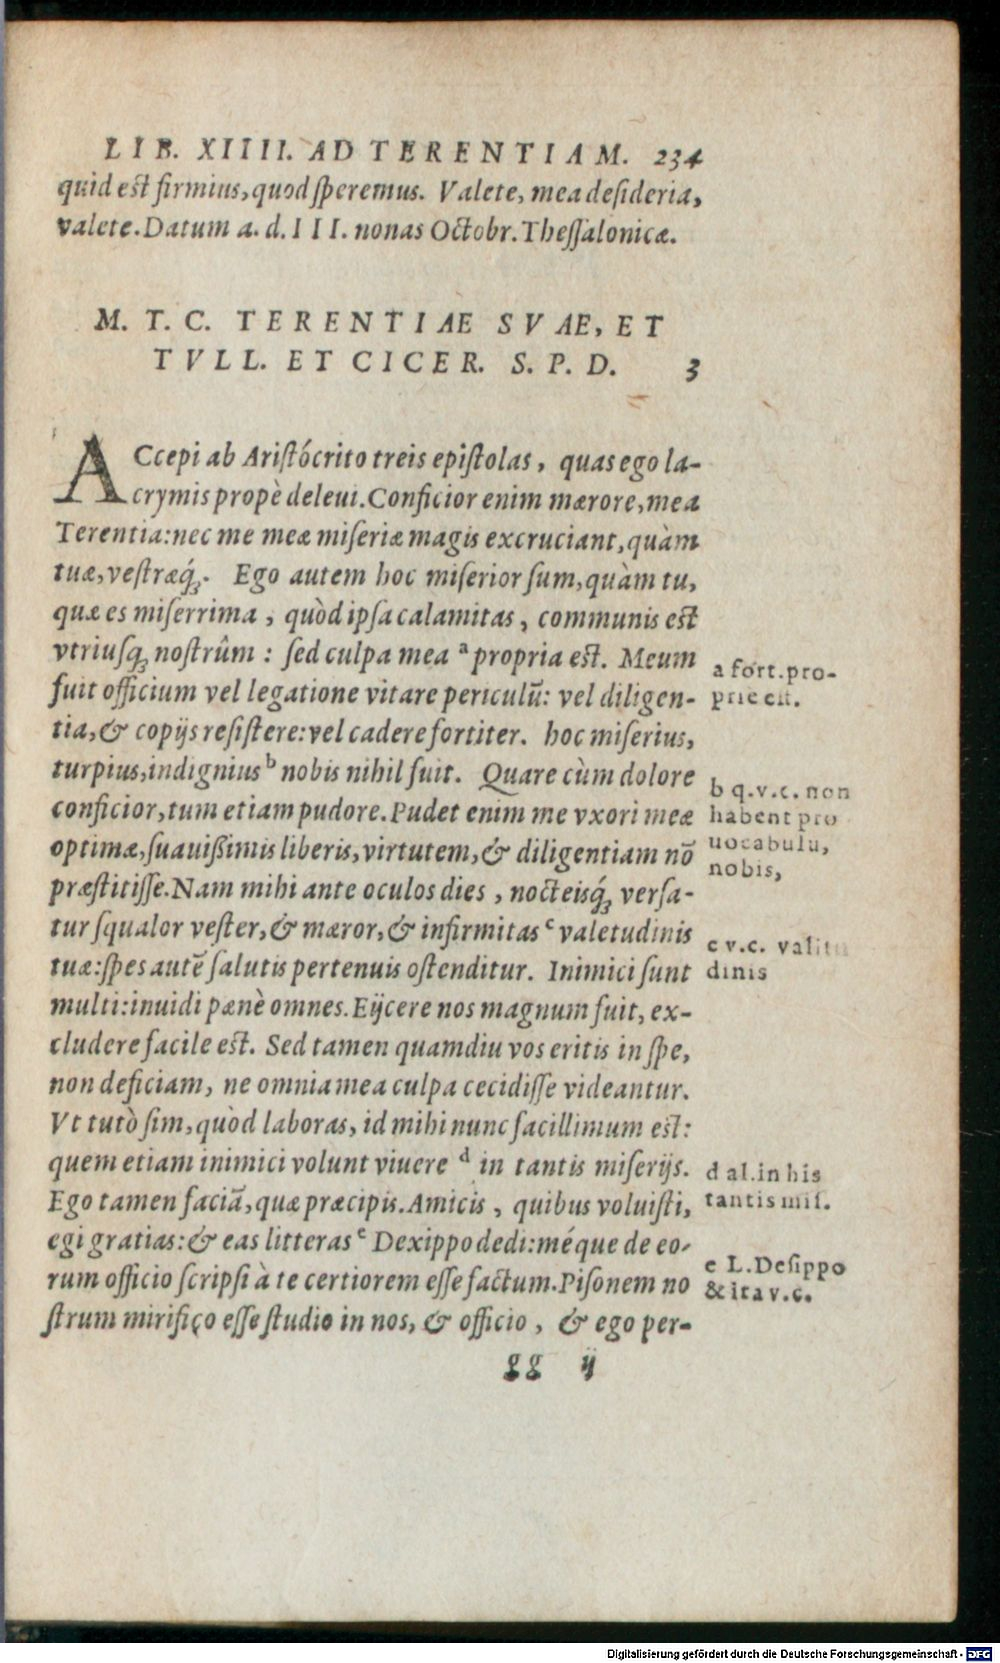 LIB. XIIII. AD TERENTIAM. 234
quid est firmius, quod speremus. Valete, mea desideria,
valete. Datum a. d. III. nonas Octobr. Thessalonicæ.
M. T. C. TERENTIAE SVAE, ET
TVLL. ET CICER. S. P. D. 3
ACcepi ab Aristócrito treis epistolas, quas ego la-
crymis propè deleui. Conficior enim mærore, mea
Terentia: nec me meæ miseriæ magis excruciant, quàm
tuæ, vestræq́;. Ego autem hoc miserior sum, quàm tu,
quæ es miserrima, quòd ipsa calamitas, communis est
vtriusq; nostrûm: sed culpa mea ᵃ propria est. Meum
fuit officium vel legatione vitare periculū: vel diligen-
tia, & copijs resistere: vel cadere fortiter. hoc miserius,
turpius, indignius ᵇ nobis nihil fuit. Quare cùm dolore
conficior, tum etiam pudore. Pudet enim me vxori meæ
optimæ, suauißimis liberis, virtutem, & diligentiam nō
præstitisse. Nam mihi ante oculos dies, nocteisq́; versa-
tur squalor vester, & mæror, & infirmitas ᶜ valetudinis
tuæ: spes autē salutis pertenuis ostenditur. Inimici sunt
multi: inuidi pænè omnes. Eijcere nos magnum fuit, ex-
cludere facile est. Sed tamen quamdiu vos eritis in spe,
non deficiam, ne omnia mea culpa cecidisse videantur.
Vt tutò sim, quòd laboras, id mihi nunc facillimum est:
quem etiam inimici volunt viuere ᵈ in tantis miserijs.
Ego tamen faciā, quæ præcipis. Amicis, quibus voluisti,
egi gratias: & eas litteras ᵉ Dexippo dedi: méque de eo-
rum officio scripsi à te certiorem esse factum. Pisonem no
strum mirifico esse studio in nos, & officio, & ego per-
gg ij
a fort. pro-
prie est.
b q.v.c. non
habent pro
uocabulu,
nobis,
c v.c. valitu
dinis
d al. in his
tantis mis.
e L. Desippo
& ita v.c.
Digitalisierung gefördert durch die Deutsche Forschungsgemeinschaft - DFG